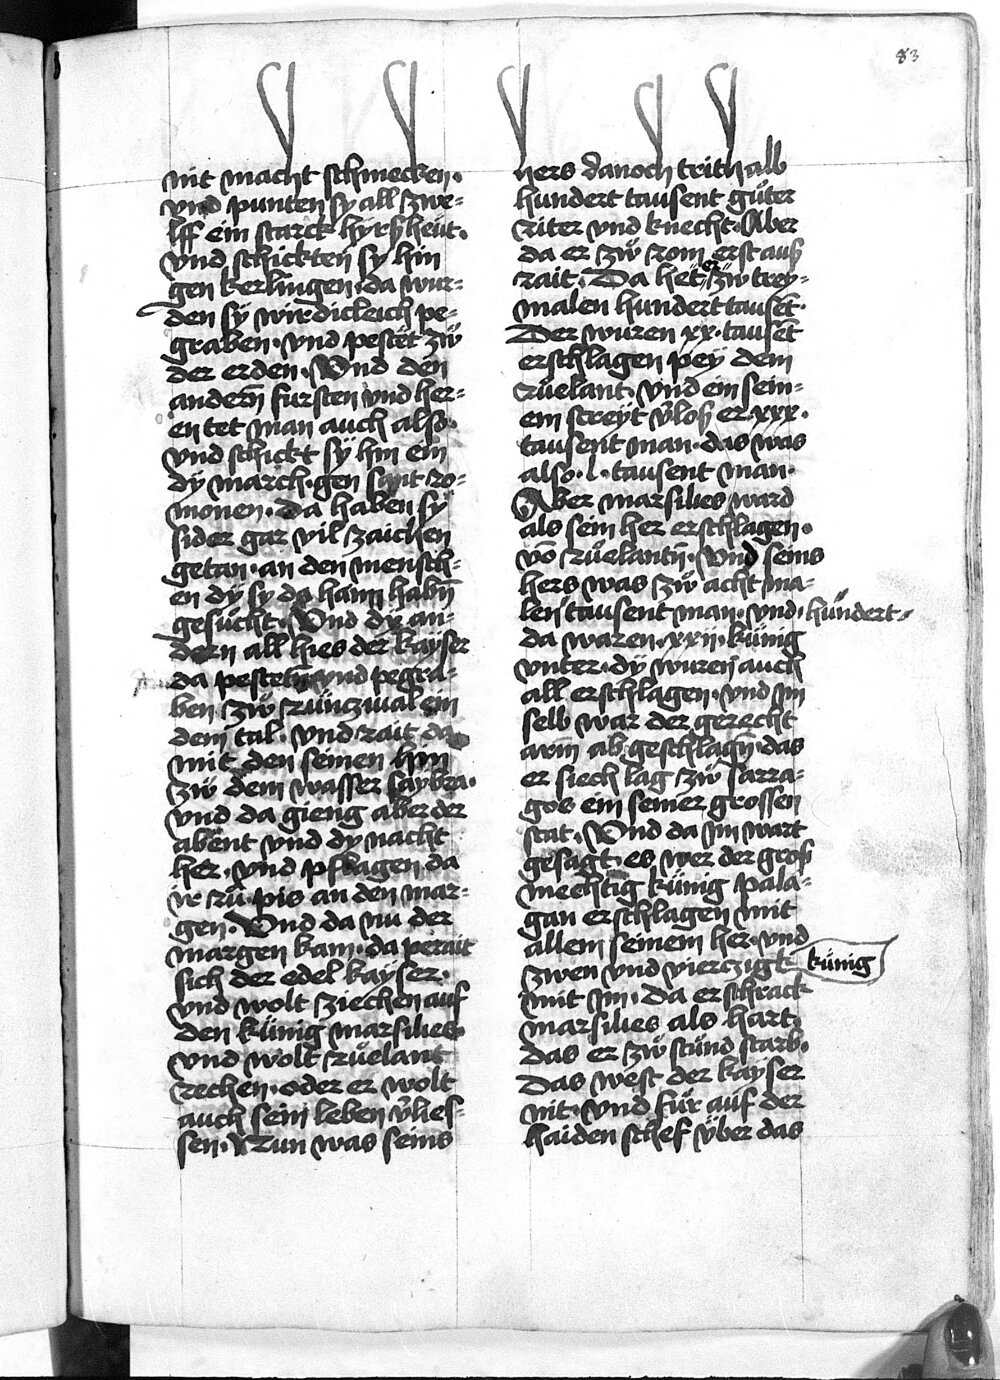 83
nit macht schmecken.
vnd punten sy all zwe-
lff ein starck hyrsheüt.
vnd schickten sy hin
gen kerlingen. da wur-
den sy wirdicleich pe-
graben. vnd pestet zw̎
der erden. Vnd den
andern̄ fursten vnd her-
en tet man auch also.
vnd schickt sÿ hin ein
dÿ march. gen sant ro-
monen. da haben sÿ
sider gar vil zaichen
getan. an den mensch-
en dÿ sy da ham habn̄
gesücht. Vnd dy an-
dern all hies der kayser
da pesteten vnd pegra-
ben zw̎ rünczual ein
dem tal. vnd rait da
mit den seinen hin
zw̎ dem wasser saybra.
vnd da gieng aber der
abent vnd dy nacht
her. vnd pflagen da
ir rü. pis an den mar-
gen. Vnd da nu der
margen kam. da perait
sich der edel kayser.
vnd wolt ziechen auf
den künig marsilies.
vnd wolt rüelant
rechen. oder er wolt
auch sein leben v̄lies-
sen. Nun was seins
hers danoch trithalb
hundert tausent güter
riter vnd knecht. Aber
da er zw̎ rom erst aus
rait. Da het er zw̎ trey-
malen hundert tausēt.
Der wuren xx. tausēt
erschlagen pey dem
rüelant. vnd ein sein-
em streÿt v̄los er xxx.
tausent man. das was
also. l. tausent man.
Aber marsilies ward
als sein her erschlagen.
vō rüelantn̄. Vnd seins
hers was zw̎ acht ma-
len tausent man. vnd. hündert.
da waren. xxii. künig
vnter. dÿ wuren auch
all erschlagen. vnd im
selb war der gerecht
arm ab geschlagn̄. das
er siech lag zw̎ sarra-
gos ein seiner grossen
stat. Vnd da im wart
gesagt. es wer der gros
mechtig künig pala-
gan erschlagen mit
allem seinem her. vnd
zwen vnd vierczigk künig
mit im. Da erschrack
marsilies als hart.
das er zw̎ stünd starb.
Das west der kayser
nit. vnd für auf der
haiden schef über das